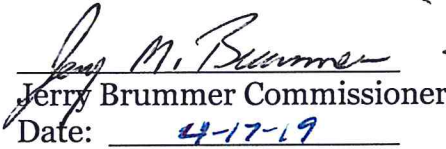 Jerry M. Brummer
Jerry Brummer Commissioner
Date: 4-17-19